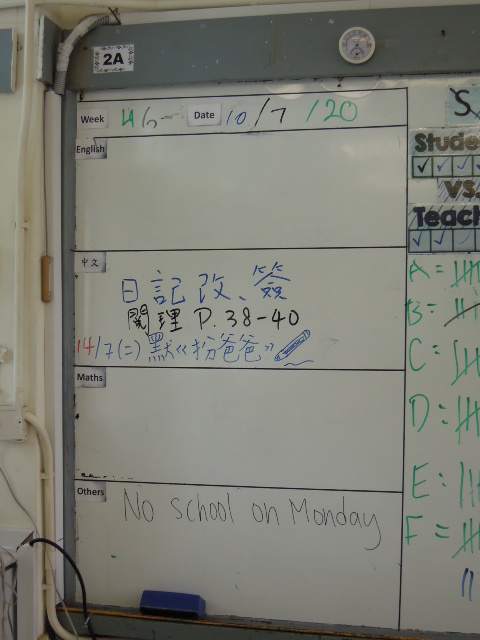 2A
Week 4/5 Date 10/7/20
English
中文
日記改、簽
閱理 P.38-40
14/7(二) 默《扮爸爸》
Maths
Others
No school on Monday
S
Stude
VS.
Teach
A=
B=
C:
D:
E:
F=